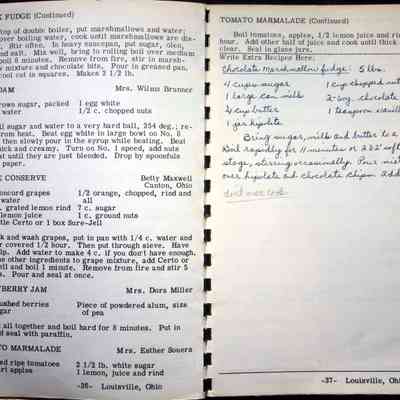 FUDGE (Continued)
top of double boiler, put marshmallows and water;
over boiling water, cook until marshmallows are dis-
Stir often. In heavy saucepan, put sugar, oleo,
and salt. Mix well, bring to rolling boil over medium
boil 8 minutes. Remove from fire, stir in marsh-
mixture and chocolate bits. Pour in greased pan,
cool cut in squares. Makes 2 1/2 lb.
JAM
Mrs. Wilma Brunner
brown sugar, packed 1 egg white
water 1/2 c. chopped nuts
sugar and water to a very hard ball, 254 deg.; re-
from heat. Beat egg white in large bowl on No. 8
then slowly pour in the syrup while beating. Beat
thick and creamy. Turn on No. 1 speed, add nuts
until they are just blended. Drop by spoonfuls
paper.
CONSERVE
Betty Maxwell
Canton, Ohio
concord grapes 1/2 orange, chopped, rind and
water all
grated lemon rind 7 c. sugar
lemon juice 1 c. ground nuts
Certo or 1 box Sure-Jell
and wash grapes, put in pan with 1/4 c. water and
covered 1/2 hour. Then put through sieve. Have
Add water to make 4 c. if you don't have enough.
other ingredients to grape mixture, add Certo or
and boil 1 minute. Remove from fire and stir 5
Pour and seal at once.
BERRY JAM
Mrs. Dora Miller
crushed berries Piece of powdered alum, size
sugar of pea
all together and boil hard for 8 minutes. Put in
seal with paraffin.
TOMATO MARMALADE
Mrs. Esther Souers
red ripe tomatoes 2 1/2 lb. white sugar
tart apples 1 lemon, juice and rind
-36- Louisville, Ohio
TOMATO MARMALADE (Continued)
Boil tomatoes, apples, 1/2 lemon juice and rind
hour. Add other half of juice and cook until thick
clear. Seal in glass jars.
Write Extra Recipes Here:
Chocolate Marshmallow fudge: 5 lbs.
4 cups sugar 1 cup chopped nuts
1 large can milk 2-6oz. chocolate
butter 1 teaspoon vanilla
1 jar hipolite
Bring sugar, milk and butter to a
Boil rapidly for 11 minutes or 225° soft
stage, stirring occasionally. Pour
over hipolite and chocolate chips. Add
don't over cook
-37- Louisville, Ohio